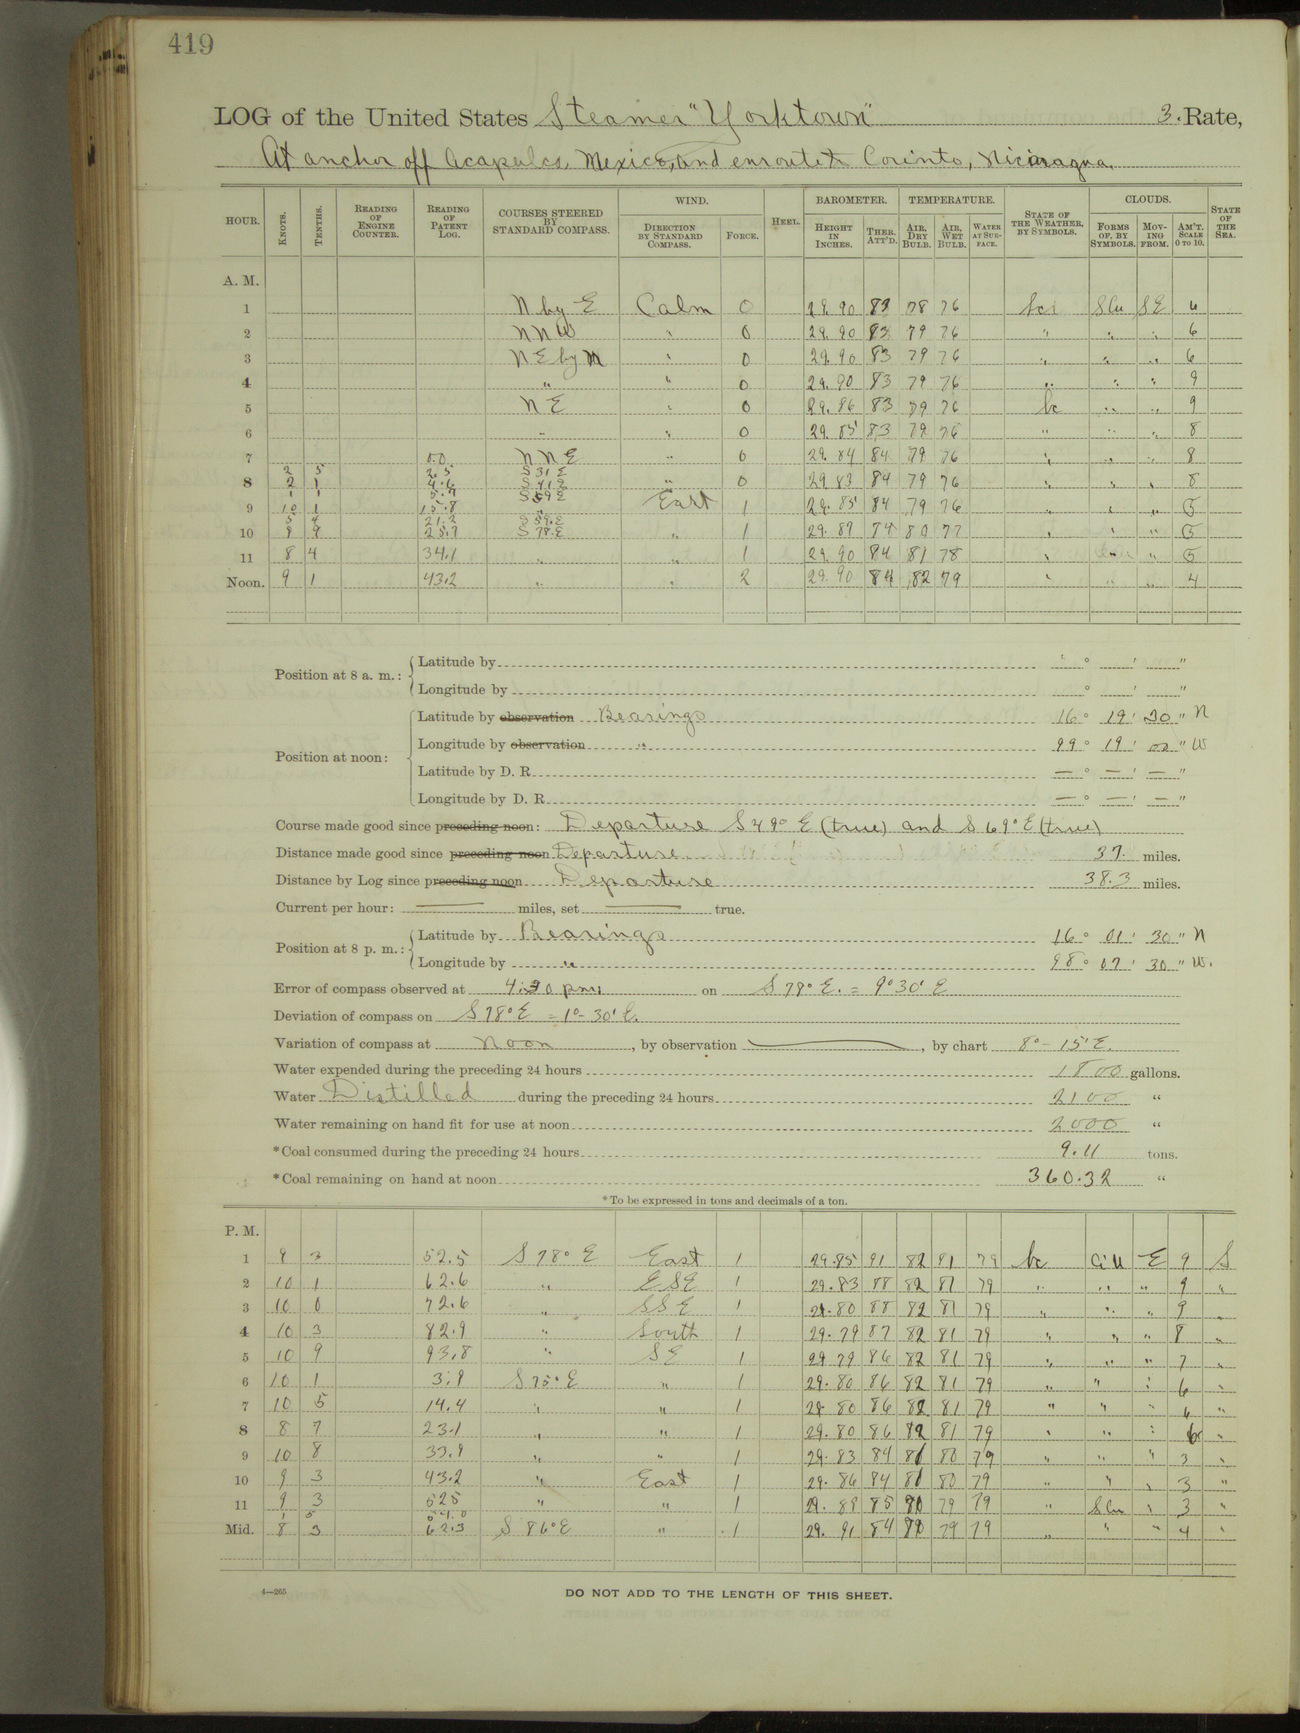 419
LOG of the United States Steamer "Yorktown" 3. Rate,
At anchor off Acapulco, Mexico, and enroute to Corinto, Nicaragua.
HOUR. KNOTS. TENTHS. READING OF ENGINE COUNTER. READING OF PATENT LOG. COURSES STEERED BY STANDARD COMPASS. WIND. DIRECTION BY STANDARD COMPASS. FORCE. HEEL. BAROMETER. HEIGHT IN INCHES. THER. ATT'D. TEMPERATURE. AIR, DRY BULB. AIR, WET BULB. WATER AT SURFACE. STATE OF THE WEATHER, BY SYMBOLS. CLOUDS. FORMS OF, BY SYMBOLS. MOVING FROM. AM'T. SCALE 0 TO 10. STATE OF THE SEA.
A. M.
1 N by E Calm 0 29.90 83 78 76 SE 6
2 NNW " 0 29.90 83 79 76 " " " 6
3 NE by N " 0 29.90 83 79 76 " " " 6
4 " " 0 29.90 83 79 76 " " " 9
5 NE " 0 29.86 83 79 76 bc " " 9
6 " " 0 29.85 83 79 76 " " " 8
7 0.0 NNE " 0 29.84 84 79 76 " " " 8
2 5 2.5 S 31 E
8 2 1 4.6 S 41 E " 0 29.83 84 79 76 " " " 8
1 1 5.7 S 59 E
9 10 1 15.8 " East 1 29.85 84 79 76 " " " 5
5 4 21.2 S 59 E
10 25.7 S 78 E " 1 29.89 74 80 77 " " " 5
11 8 4 34.1 " " 1 29.90 84 81 78 " " " 5
Noon. 9 1 43.2 " " 2 29.90 84 82 79 " " " 4
Position at 8 a. m.: Latitude by ° ' "
Longitude by ° ' "
Position at noon: Latitude by observation Bearings 16° 19' 30" N
Longitude by observation " 99° 19' 00" W
Latitude by D. R. — ° — ' — "
Longitude by D. R. — ° — ' — "
Course made good since preceding noon: Departure S 49° E (true) and S 69° E (true)
Distance made good since preceding noon Departure 37. miles.
Distance by Log since preceding noon Departure 38.3 miles.
Current per hour: — miles, set — true.
Position at 8 p. m.: Latitude by Bearings 16° 01' 30" N
Longitude by " 98° 07' 30" W.
Error of compass observed at 4:30 pm. on S 78° E. = 9° 30' E
Deviation of compass on S 78° E = 1° - 30' E.
Variation of compass at Noon, by observation —, by chart 8° - 15' E.
Water expended during the preceding 24 hours 1800 gallons.
Water Distilled during the preceding 24 hours 2100 "
Water remaining on hand fit for use at noon 2000 "
*Coal consumed during the preceding 24 hours 9.11 tons.
*Coal remaining on hand at noon 360.32 "
*To be expressed in tons and decimals of a ton.
P. M.
1 9 3 52.5 S 78° E East 1 29.85 91 82 81 79 bc E 9 S
2 10 1 62.6 " ESE 1 29.83 88 82 81 79 " " " 9 "
3 10 0 72.6 " SSE 1 29.80 88 82 81 79 " " " 9 "
4 10 3 82.9 " South 1 29.79 87 82 81 79 " " " 8 "
5 10 9 93.8 " SE 1 29.79 86 82 81 79 " " " 7 "
6 10 1 3.9 S 75° E " 1 29.80 86 82 81 79 " " " 6 "
7 10 5 14.4 " " 1 29.80 86 82 81 79 " " " 6 "
8 8 7 23.1 " " 1 29.80 86 82 81 79 " " " 6 "
9 10 8 33.9 " " 1 29.83 84 81 80 79 " " " 3 "
10 9 3 43.2 " East 1 29.86 84 81 80 79 " " " 3 "
11 9 3 52.5 " " 1 29.89 85 80 79 79 " " 3 "
1 5 54.0
Mid. 8 3 62.3 S 86° E " 1 29.91 84 80 79 79 " " " 4 "
4—265
DO NOT ADD TO THE LENGTH OF THIS SHEET.